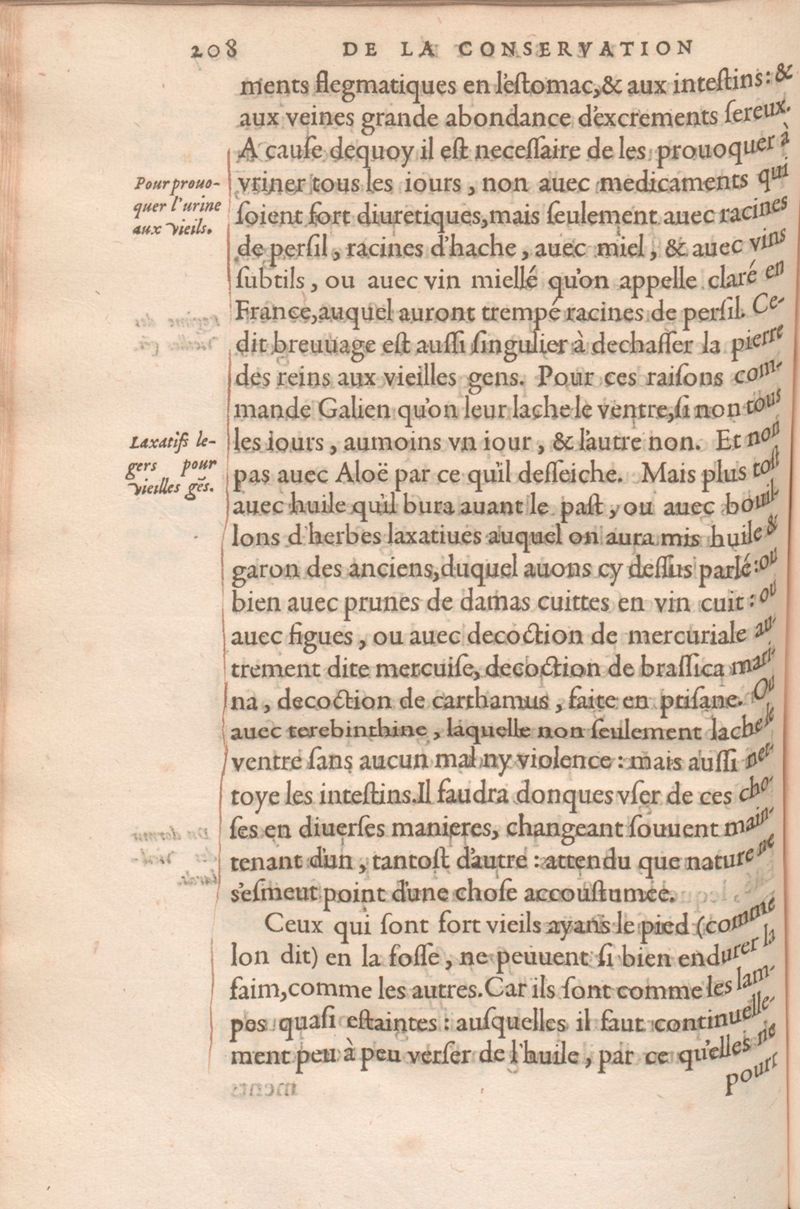 208 DE LA CONSERVATION
ments flegmatiques en l'eſtomac,& aux inteſtins: &
aux veines grande abondance d'excrements ſereux.
A cauſe dequoy il eſt neceſſaire de les prouoquer à
Pour prouo-
quer l'urine
aux vieils.
vriner tous les iours, non auec medicaments qui
ſoient fort diuretiques,mais ſeulement auec racines
de perſil, racines d'hache, auec miel, & auec vins
ſubtils, ou auec vin miellé qu'on appelle claré en
France,auquel auront trempé racines de perſil. Ce-
dit breuuage eſt auſſi ſingulier à dechaſſer la pierre
des reins aux vieilles gens. Pour ces raiſons com-
mande Galien qu'on leur lache le ventre,ſi non tous
Laxatifs le-
gers pour
vieilles gēs.
les iours, aumoins vn iour, & l'autre non. Et non
pas auec Aloë par ce qu'il deſſeiche. Mais plus toſt
auec huile qu'il bura auant le paſt, ou auec bouil-
lons d'herbes laxatiues auquel on aura mis huile &
garon des anciens,duquel auons cy deſſus parlé: ou
bien auec prunes de damas cuittes en vin cuit: ou
auec figues, ou auec decoction de mercuriale au-
trement dite mercuiſe, decoction de braſſica mari-
na, decoction de carthamus, faite en ptiſane. Ou
auec terebinthine, laquelle non ſeulement lache le
ventre ſans aucun mal ny violence: mais auſſi net-
toye les inteſtins.Il faudra donques vſer de ces cho-
ſes en diuerſes manieres, changeant ſouuent main-
tenant d'un, tantoſt d'autre: attendu que nature ne
s'eſmeut point d'une choſe accouſtumée.
Ceux qui ſont fort vieils ayans le pied (comme
lon dit) en la foſſe, ne peuuent ſi bien endurer la
faim,comme les autres.Car ils ſont comme les lam-
pos quaſi eſtaintes: auſquelles il faut continuelle-
ment peu à peu verſer de l'huile, par ce qu'elles ne
pourr